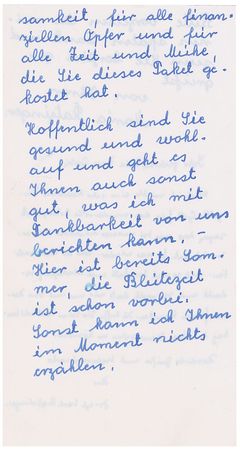 samkeit, für alle finan-
ziellen Opfer und für
alle Zeit und Mühe,
die Sie dieses Paket ge-
kostet hat.
Hoffentlich sind Sie
gesund und wohl-
auf und geht es
Ihnen auch sonst
gut, was ich mit
Dankbarkeit von uns
berichten kann. –
Hier ist bereits Som-
mer, die Blütezeit
ist schon vorbei.
Sonst kann ich Ihnen
im Moment nichts
erzählen.